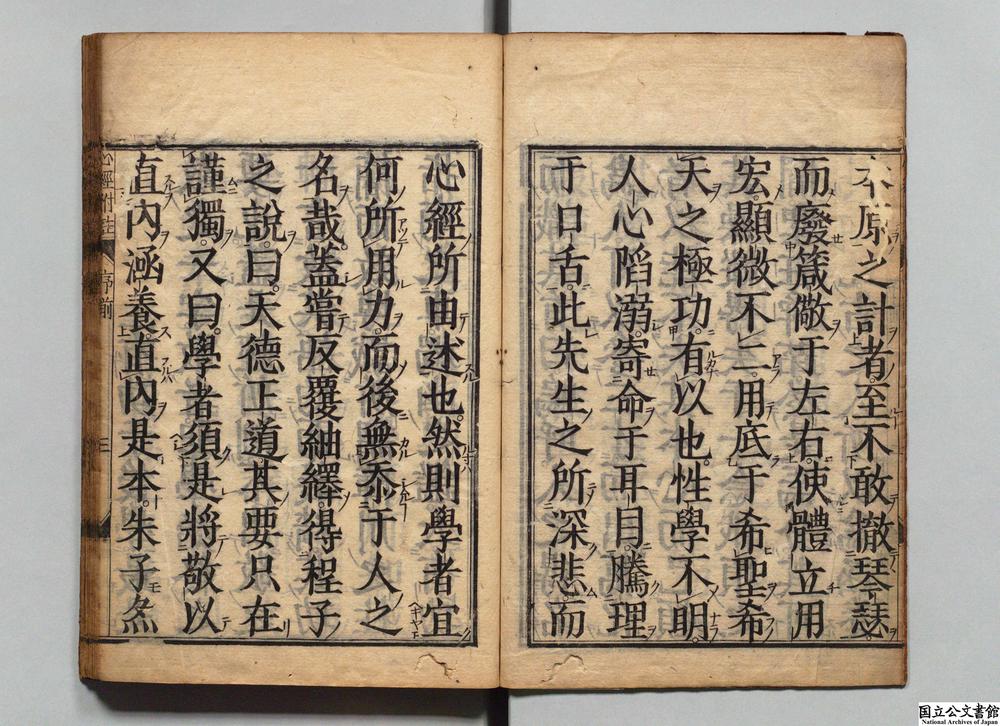 本原之計者。至不敢徹琴瑟
而廢箴儆于左右。使體立用
宏。顯微不二。用底于希聖希
天之極功。有以也。性學不明。
人心陷溺。寄命于耳目。騰理
于口舌。此先生之所深悲而
心經所由述也。然則學者宜
何所用力。而後無忝于人之
名哉。蓋嘗反覆紬繹。得程子
之說。曰。天德王道。其要只在
謹獨。又曰。學者須是將敬以
直內。涵養直內是本。朱子亦
心經附註 序前 三
国立公文書館
National Archives of Japan